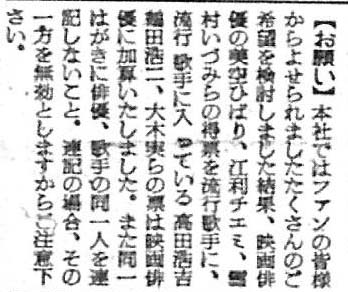 【お願い】本社ではファンの皆様
からよせられましたたくさんのご
希望を検討しました結果、映画俳
優の美空ひばり、江利チエミ、雪
村いづみらの得票を流行歌手に、
流行歌手に入っている高田浩吉
鶴田浩二、大木実らの票は映画俳
優に加算いたしました。また同一
はがきに俳優、歌手の同一人を連
記しないこと。連記の場合、その
一方を無効としますからご注意下
さい。